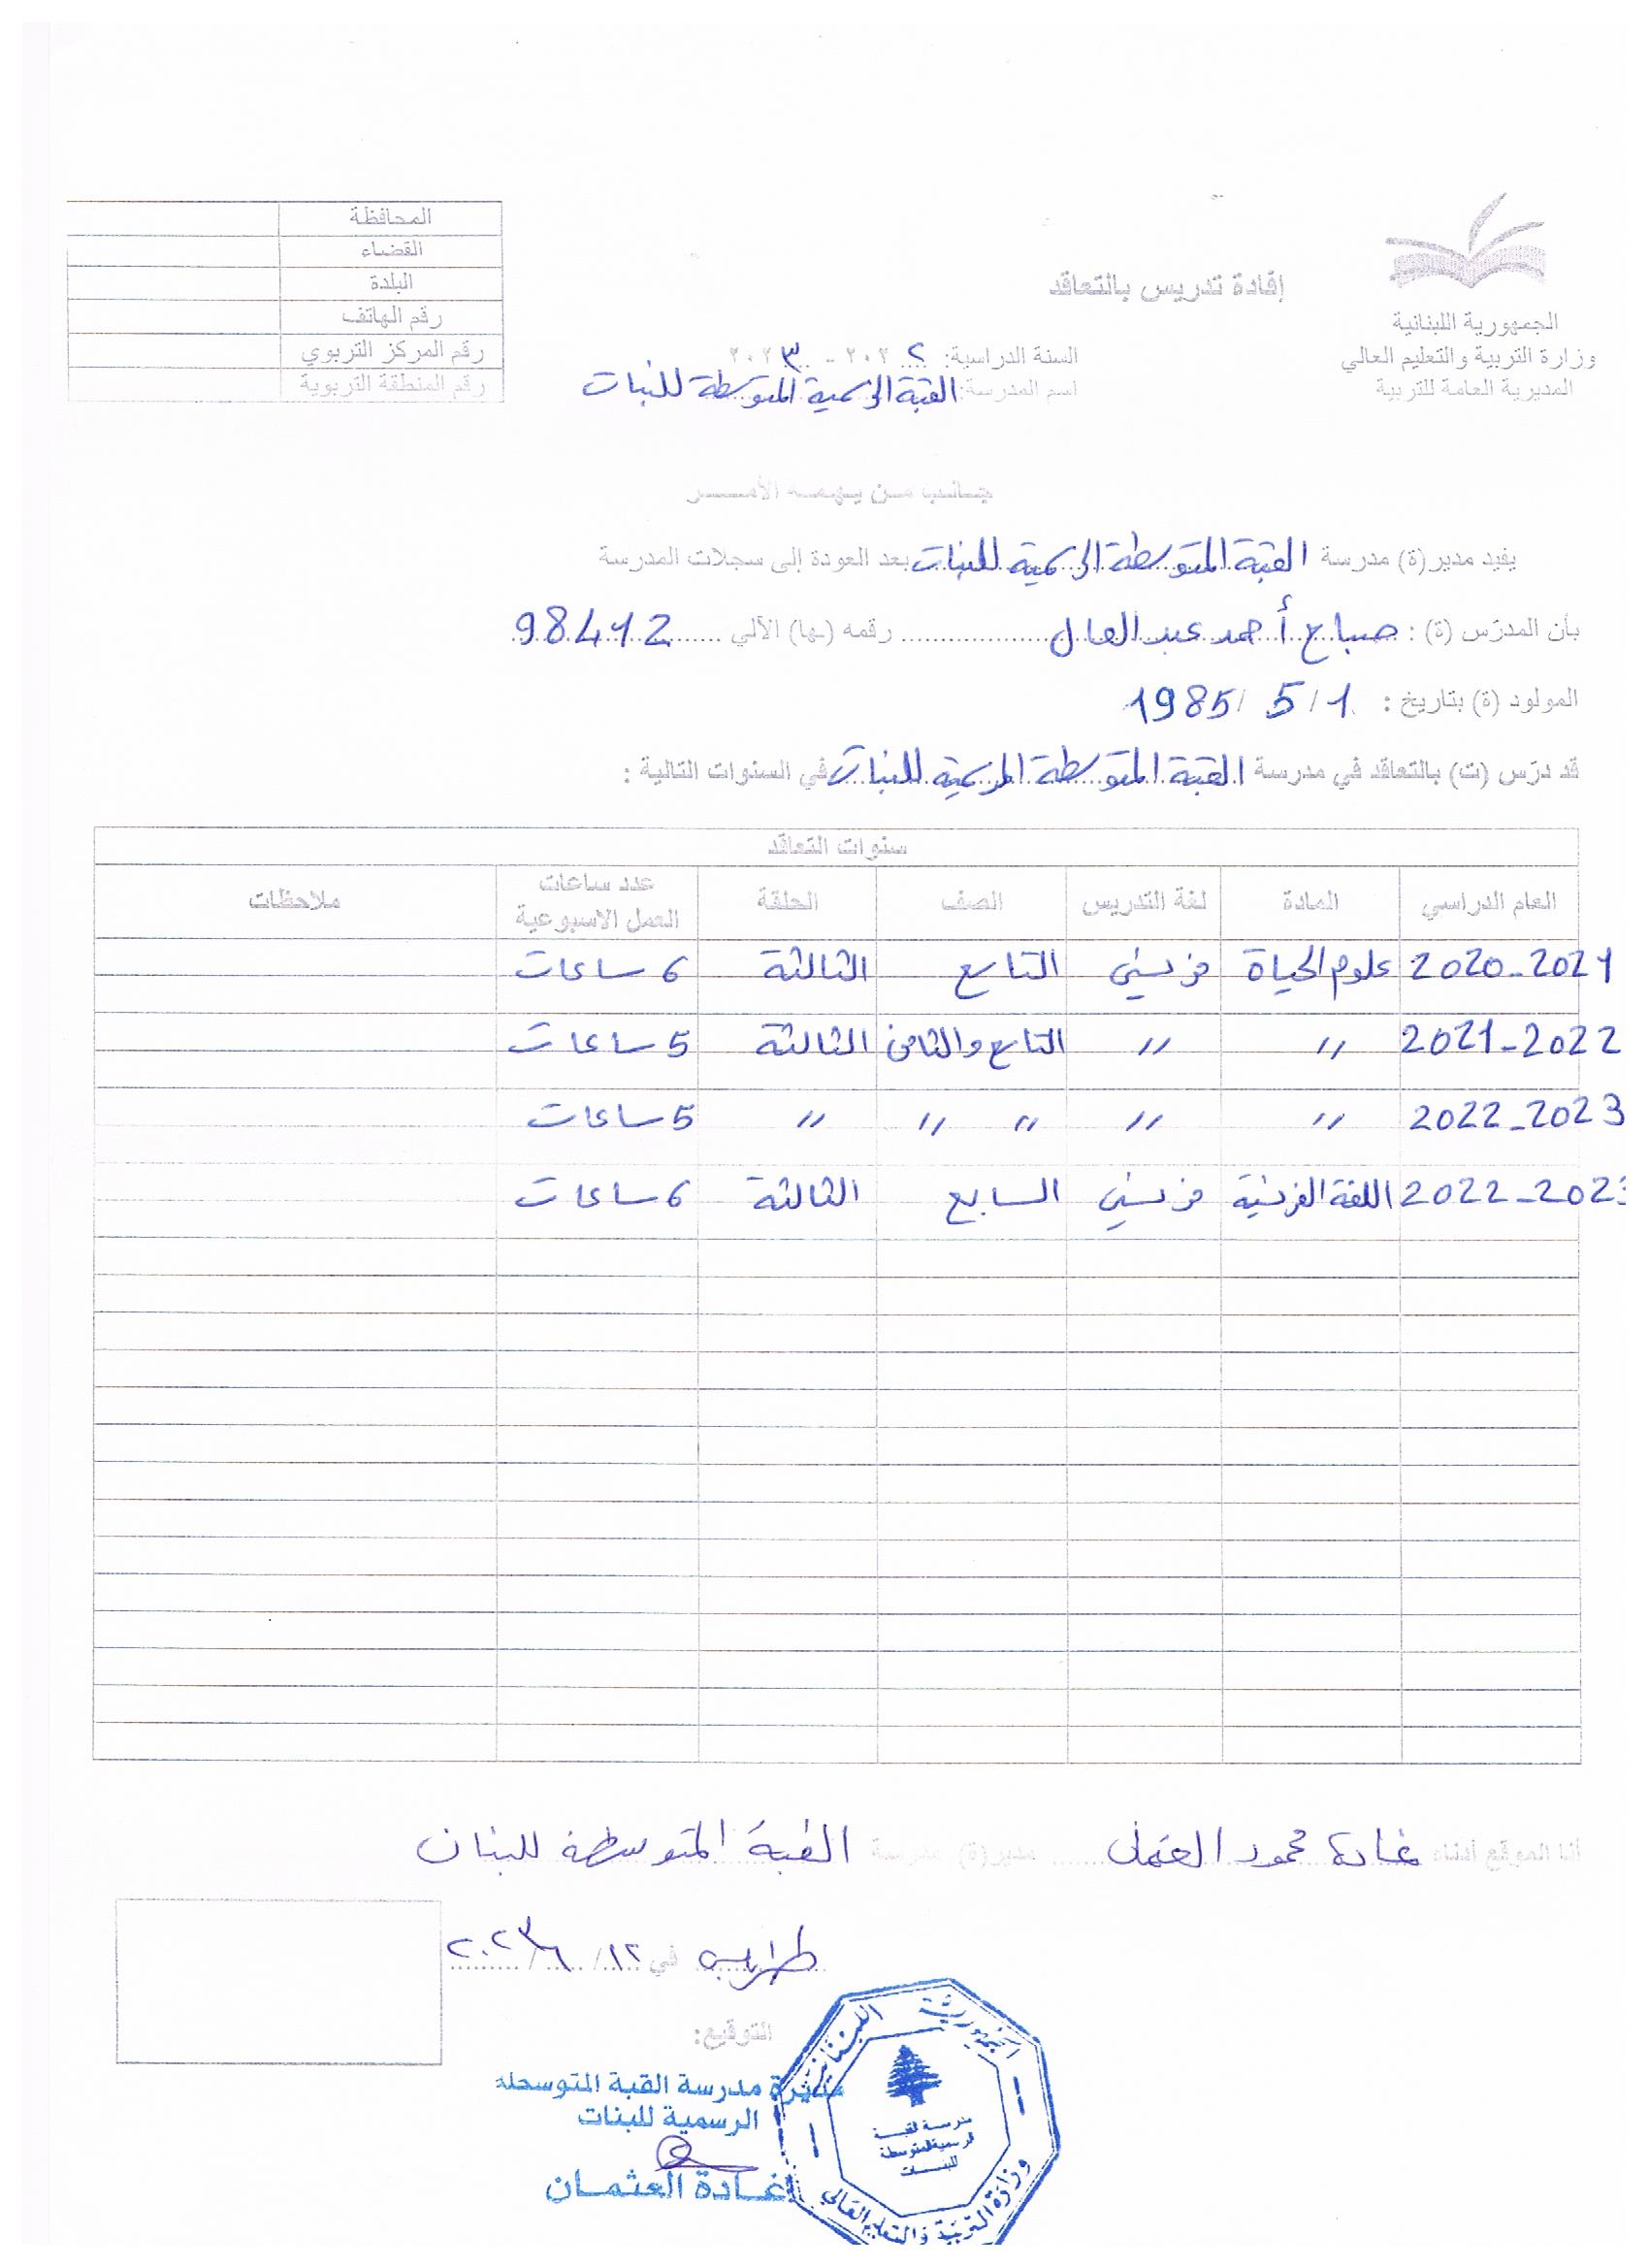 الجمهورية اللبنانية
وزارة التربية والتعليم العالي
المديرية العامة للتربية
إفادة تدريس بالتعاقد
السنة الدراسية: ٢٠٢٢ - ٢٠٢٣
اسم المدرسة: القبة الرسمية المتوسطة للبنات
المحافظة
القضاء
البلدة
رقم الهاتف
رقم المركز التربوي
رقم المنطقة التربوية
جانب من يهمه الأمر
يفيد مدير(ة) مدرسة القبة المتوسطة الرسمية للبنات بعد العودة إلى سجلات المدرسة
بأن المدرّس (ة) : صباح أحمد عبد العال رقمه (ـها) الآلي 98412
المولود (ة) بتاريخ : 1 / 5 / 1985
قد درّس (ت) بالتعاقد في مدرسة القبة المتوسطة الرسمية للبنات في السنوات التالية :
سنوات التعاقد
العام الدراسي المادة لغة التدريس الصف الحلقة عدد ساعات العمل الاسبوعية ملاحظات
2020-2021 علوم الحياة فرنسي التاسع الثالثة 6 ساعات
2021-2022 // // التاسع والثامن الثالثة 5 ساعات
2022-2023 // // // // // 5 ساعات
2022-2023 اللغة الفرنسية فرنسي السابع الثالثة 6 ساعات
أنا الموقع أدناه غادة محمود العثمان مدير(ة) مدرسة القبة المتوسطة للبنات
طرابلس في ١٢ / ٦ / ٢٠٢٣
التوقيع:
مديرة مدرسة القبة المتوسطة
الرسمية للبنات
غادة العثمان
الجمهورية اللبنانية
مدرسة القبة
الرسمية المتوسطة
للبنات
وزارة التربية والتعليم العالي